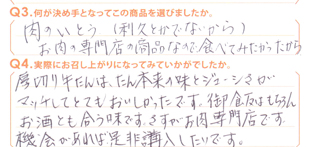 Q3.何が決め手となってこの商品を選びましたか。
肉のいとう（利久とかでないから）
お肉の専門店の商品なので食べてみたかったから
Q4.実際にお召し上がりになってみていかがでしたか。
厚切り牛たんは、たん本来の味とジューシさが
マッチしてとてもおいしかったです。御飯はもちろん
お酒とも合う味です。さすがお肉専門店です。
機会があれば是非購入したいです。